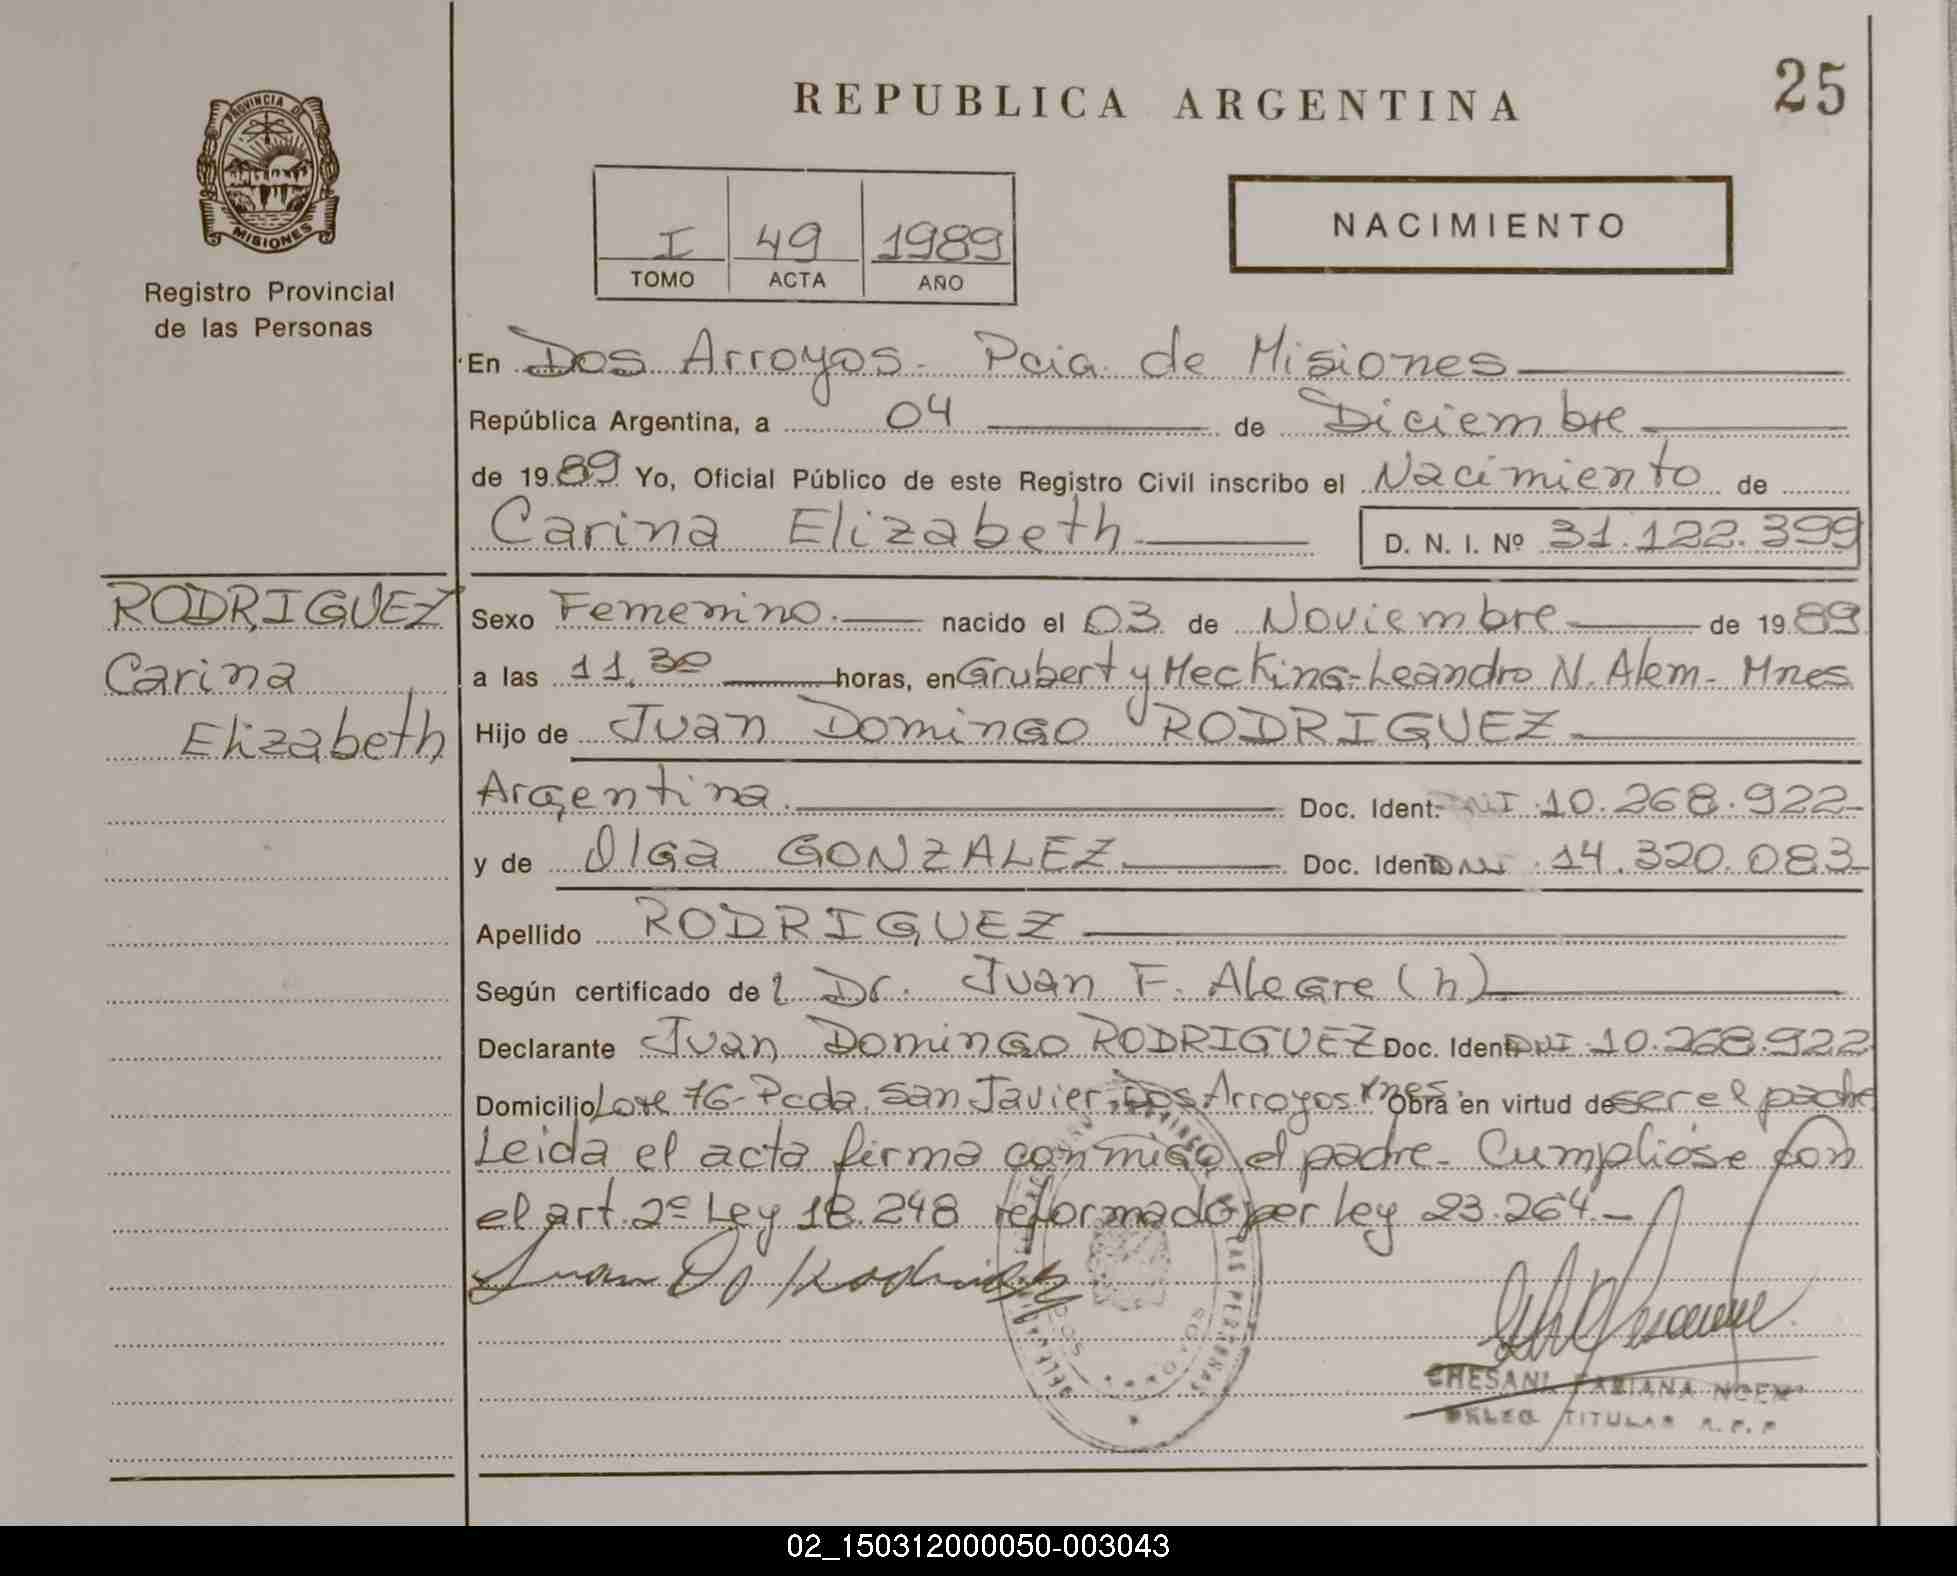 REPUBLICA ARGENTINA
25
PROVINCIA DE
MISIONES
Registro Provincial
de las Personas
I 49 1989
TOMO ACTA AÑO
NACIMIENTO
En Dos Arroyos - Pcia. de Misiones
República Argentina, a 04 de Diciembre
de 1989 Yo, Oficial Público de este Registro Civil inscribo el Nacimiento de
Carina Elizabeth D. N. I. Nº 31.122.399
RODRIGUEZ
Carina
Elizabeth
Sexo Femenino. nacido el 03 de Noviembre de 1989
a las 11,30 horas, en Grubert y Mecking-Leandro N. Alem- Mnes
Hijo de Juan Domingo RODRIGUEZ
Argentina. Doc. Ident. DNI 10.268.922-
y de Olga GONZALEZ Doc. Ident. DNI 14.320.083-
Apellido RODRIGUEZ
Según certificado del Dr. Juan F. Alegre (h)
Declarante Juan Domingo RODRIGUEZ Doc. Ident. DNI 10.268.922
Domicilio Lote 76-Pcda. San Javier, Dos Arroyos Mnes. Obra en virtud de ser el padre
Leida el acta firma conmigo el padre- Cumpliose con
el art. 2º Ley 18.248 reformado por ley 23.264.-
Juan Do Rodriguez
CHESANI FABIANA NOEMI
DELEG TITULAR R.P.P
02_150312000050-003043